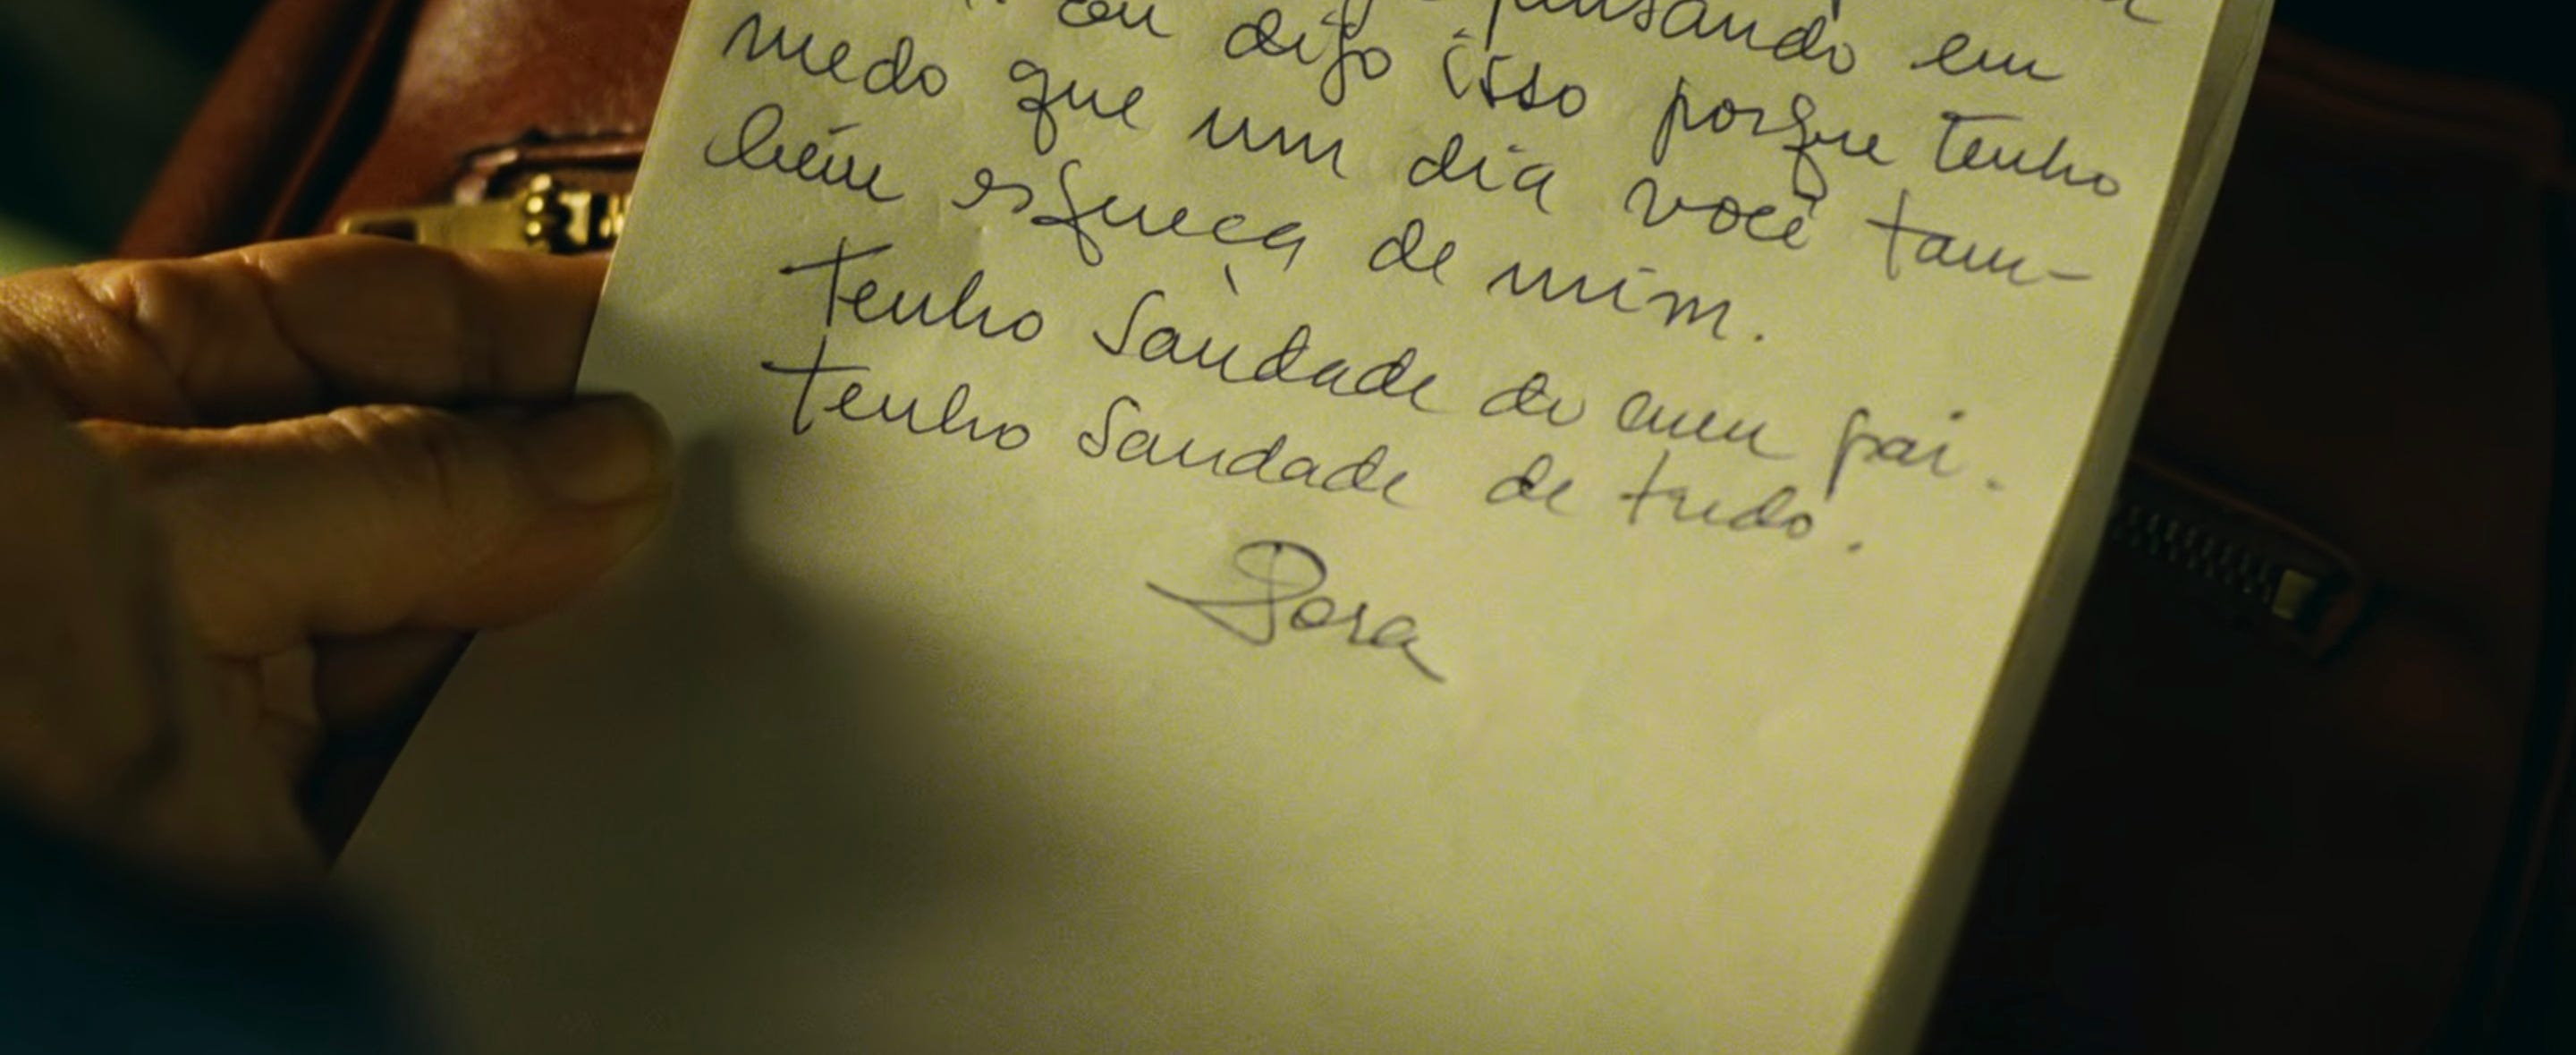 pensando em
eu digo isso porque tenho
medo que um dia você tam-
bém esqueça de mim.
Tenho Saudade do meu pai.
Tenho Saudade de tudo.
Dora